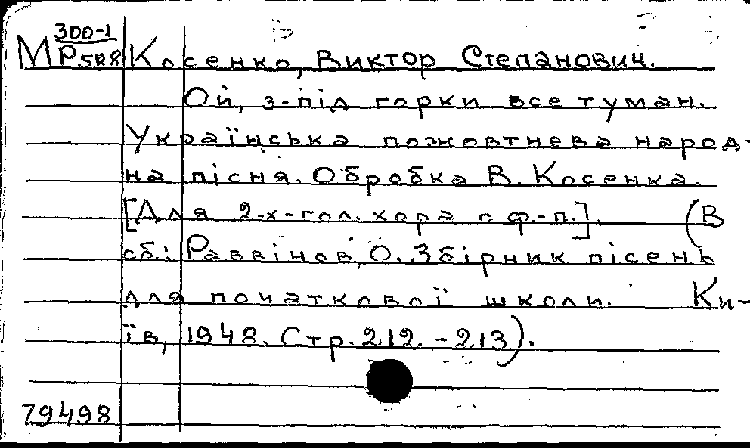 300-1
М Р588 Косенко, Виктор Степанович.
Ой, з-під горки все туман.
Українська пожовтнева народ-
на пісня. Обробка В. Косенка.
[Для 2-х-гол. хора с ф.-п.]. (В
сб.: Раввінов, О. Збірник пісень
для початкової школи. Ки-
їв, 1948. Стр. 212.-213).
79498